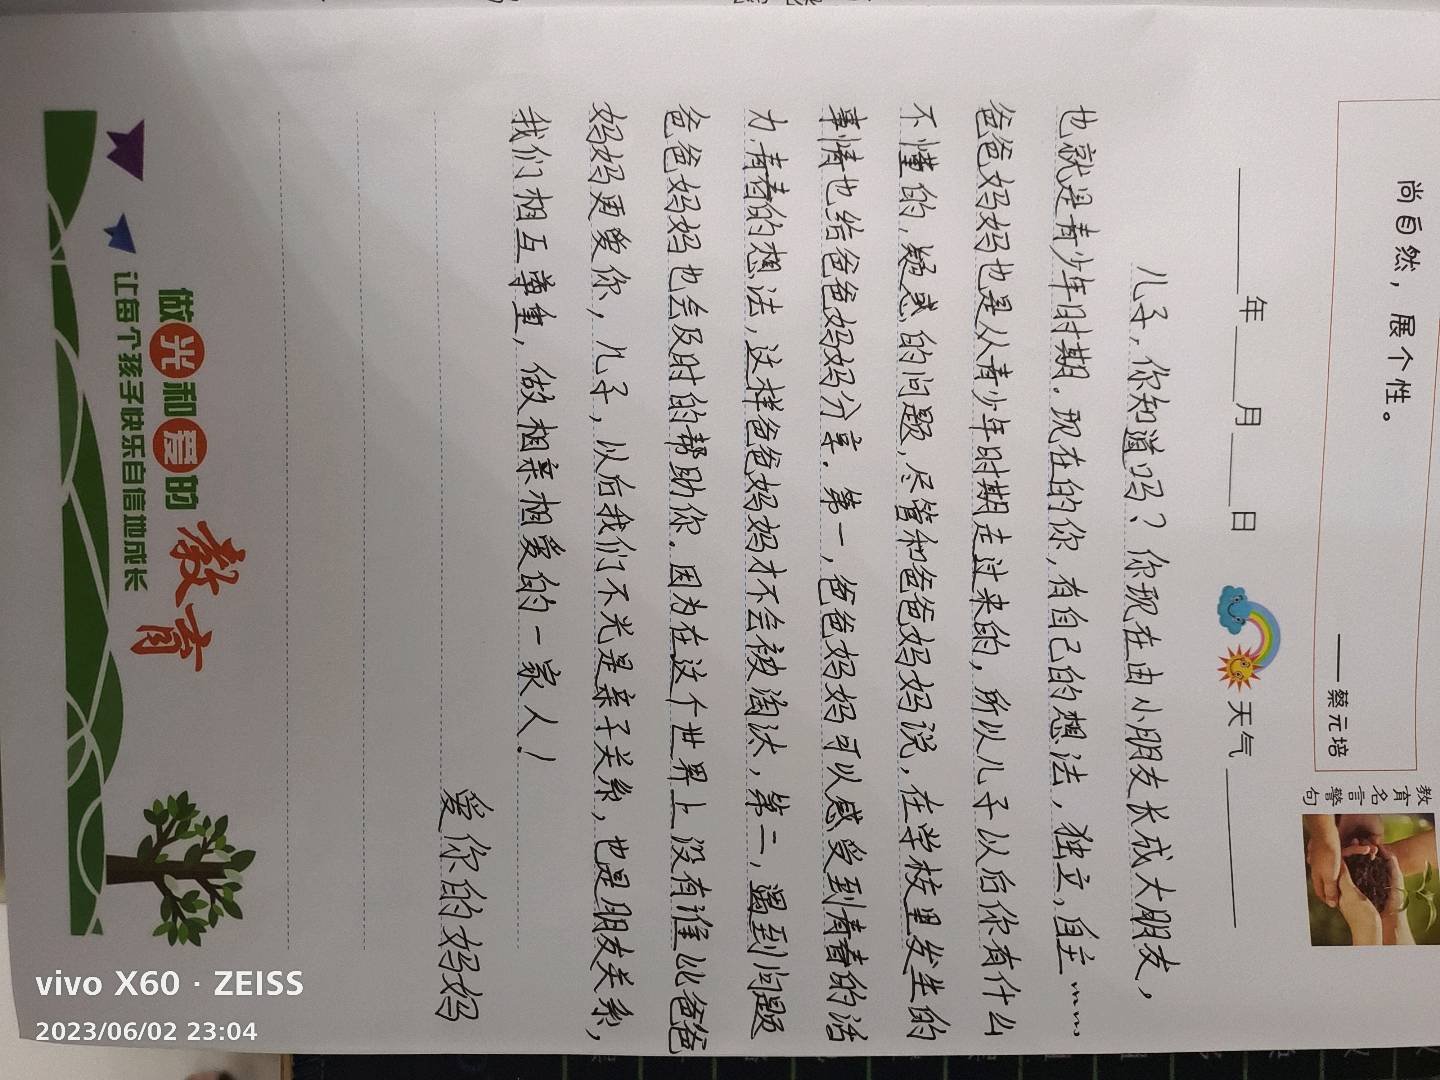 尚自然，展个性。
——蔡元培
教育名言警句
年 月 日 天气
儿子，你知道吗？你现在由小朋友长成大朋友，
也就是青少年时期．现在的你，有自己的想法，独立，自主……
爸爸妈妈也是从青少年时期走过来的，所以儿子以后你有什么
不懂的，疑惑，的问题，尽管和爸爸妈妈说，在学校里发生的
事情也给爸爸妈妈分享．第一，爸爸妈妈可以感受到青春的活
力，青春的想法，这样爸爸妈妈才不会被淘汰，第二，遇到问题
爸爸妈妈也会及时的帮助你．因为在这个世界上没有谁比爸爸
妈妈更爱你，儿子，以后我们不光是亲子关系，也是朋友关系，
我们相互尊重，做相亲相爱的一家人！
爱你的妈妈
做光和爱的教育
让每个孩子快乐自信地成长
vivo X60 · ZEISS
2023/06/02 23:04